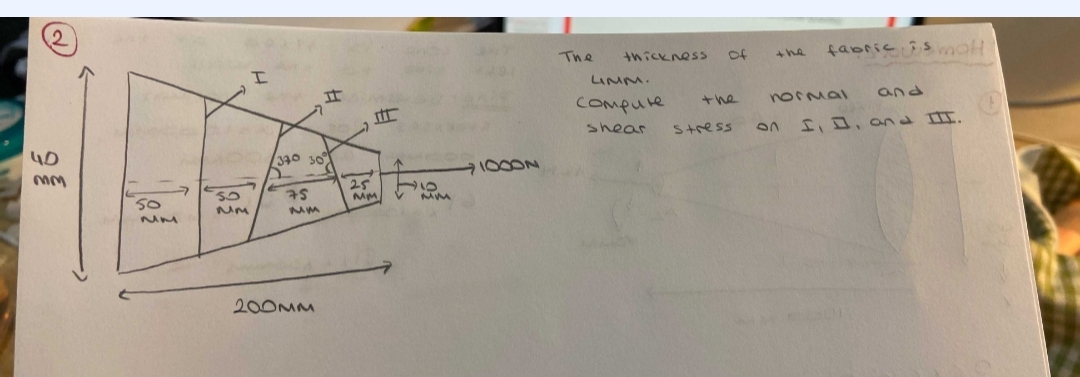 2
The thickness of the fabric is
4MM.
Compute the normal and
shear stress on I, II, and III.
I
II
III
40
MM
370 30°
1000N
50
MM
50
MM
75
MM
25
MM
10
MM
200MM